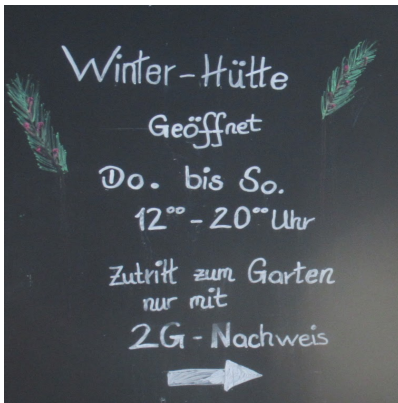 Winter-Hütte
Geöffnet
Do. bis So.
12°°-20°° Uhr
Zutritt zum Garten
nur mit
2G-Nachweis